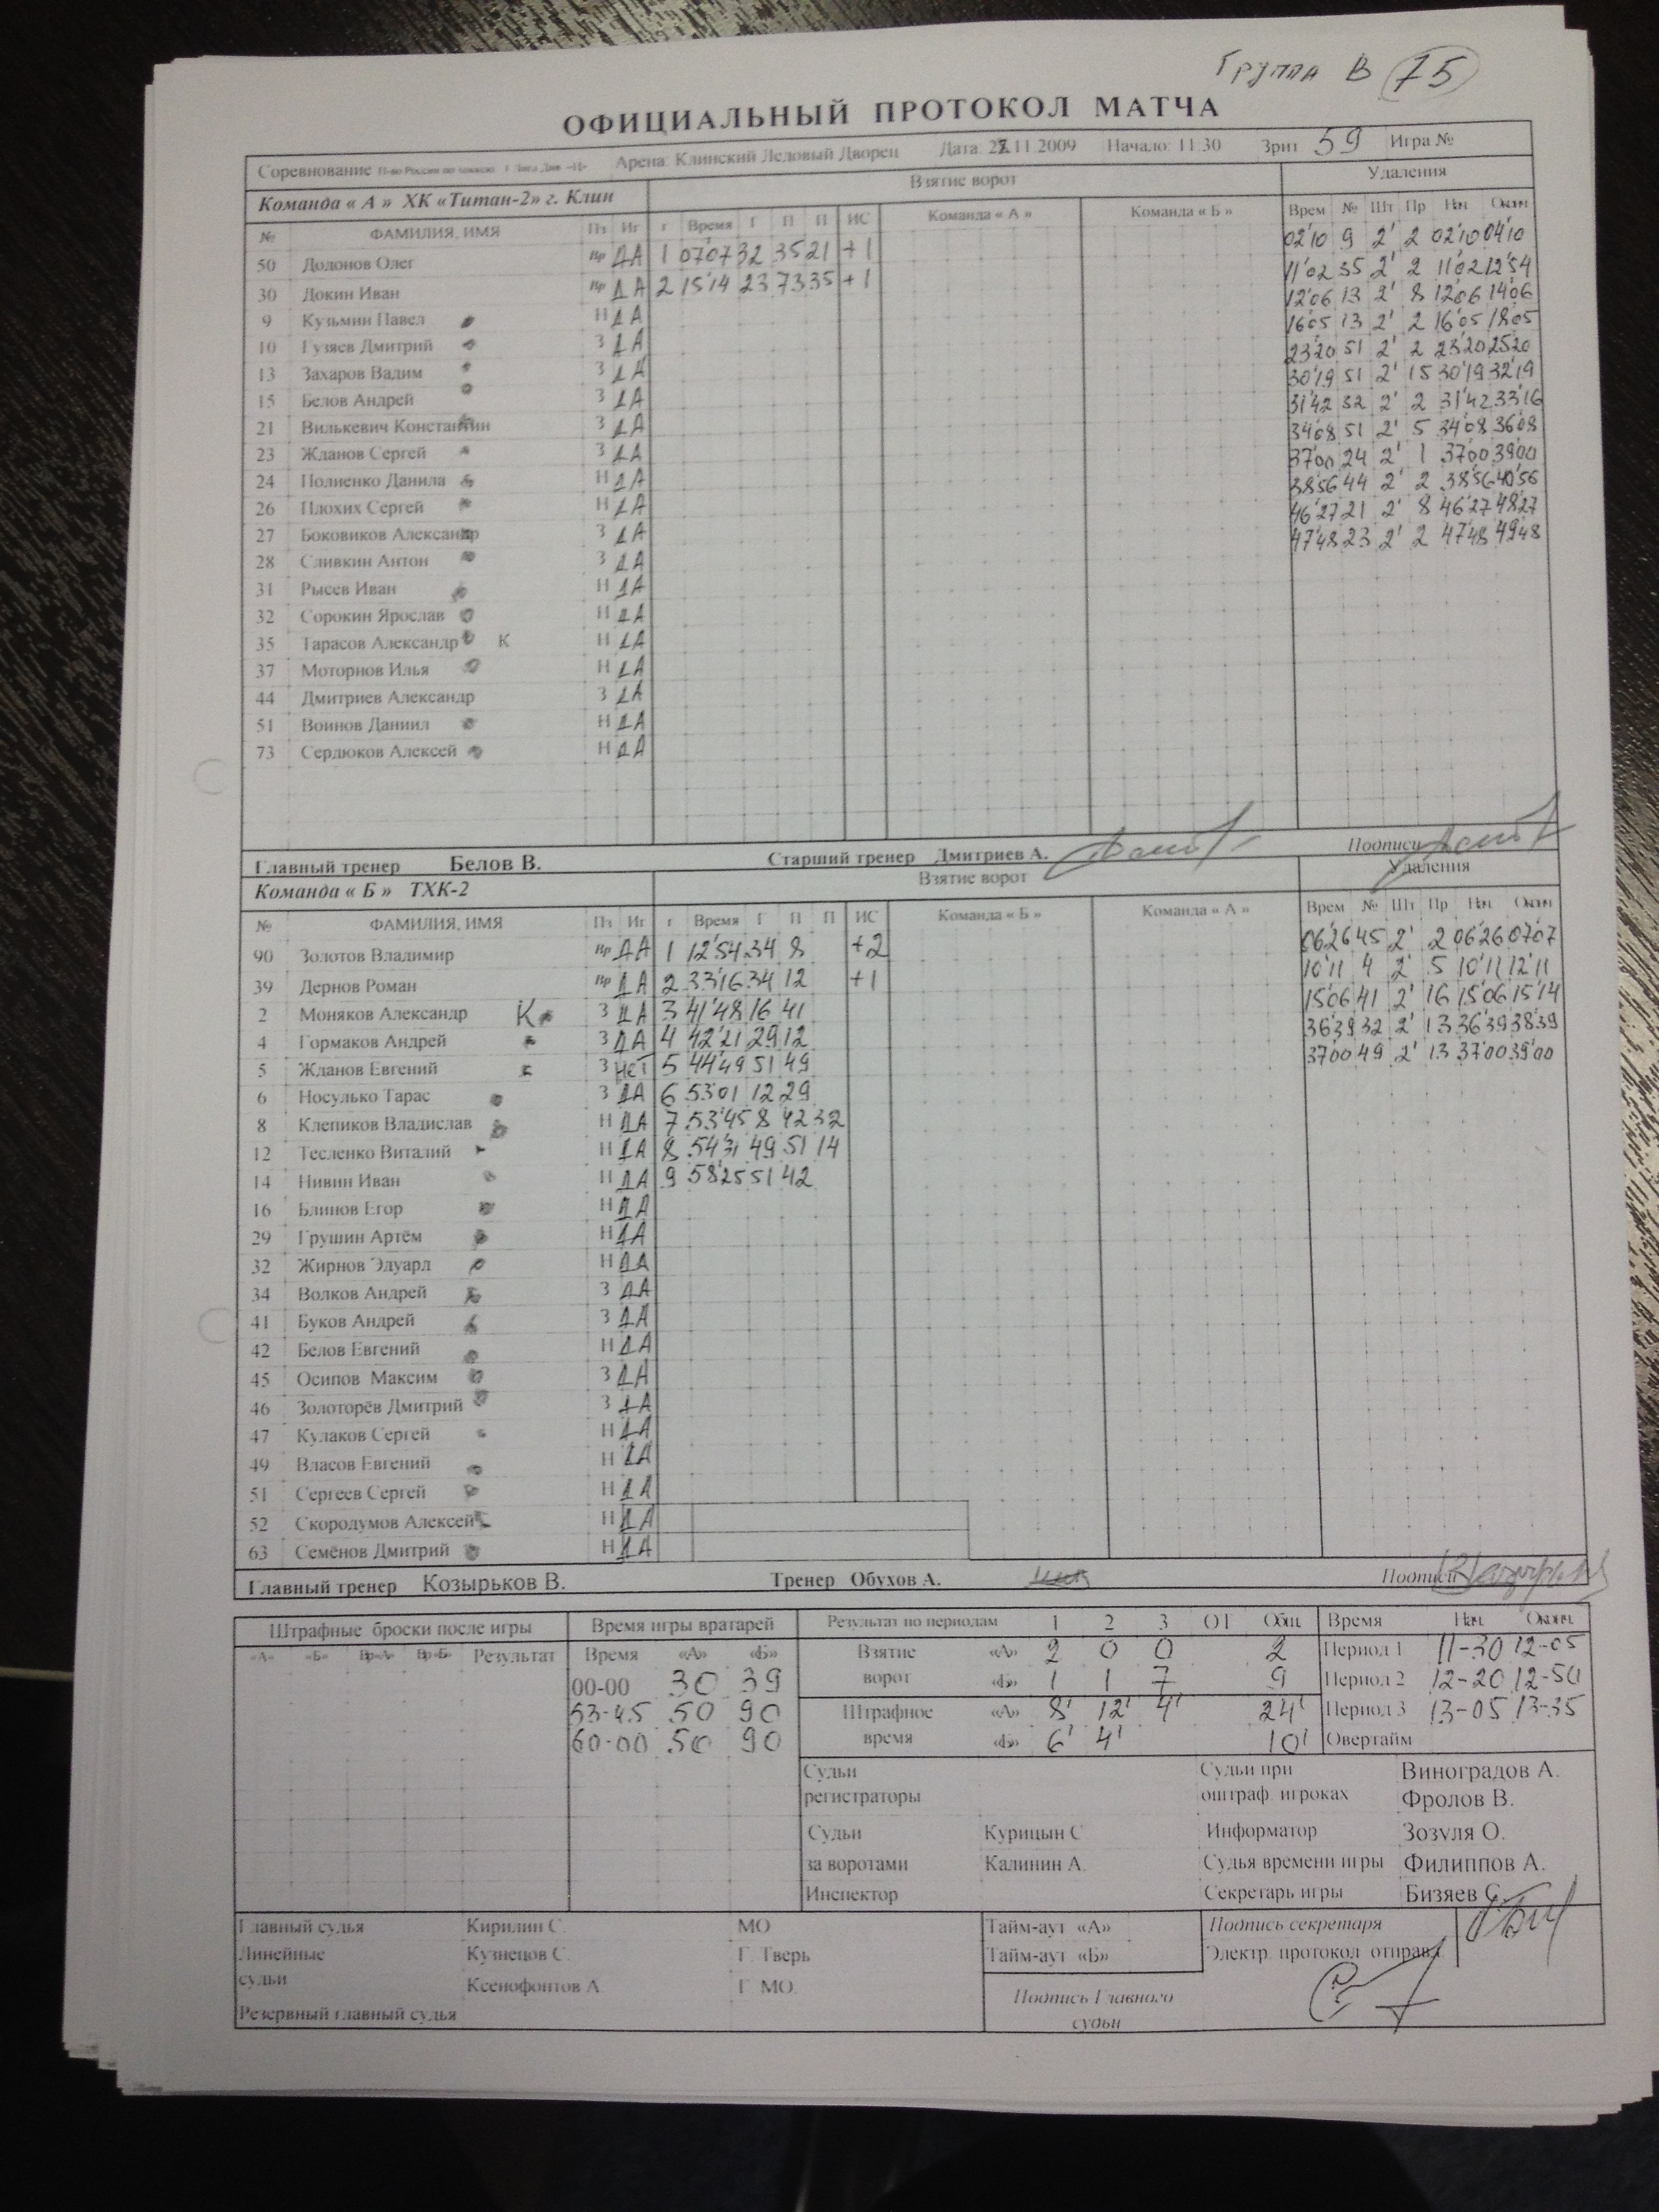 Группа В 75
ОФИЦИАЛЬНЫЙ ПРОТОКОЛ МАТЧА
Соревнование Арена: Клинский Ледовый Дворец Дата: 11.2009 Начало: 11.30 Зрит 59 Игра №
Команда « А » ХК «Титан-2» г. Клин Взятие ворот Удаления
№ ФАМИЛИЯ, ИМЯ Пз Иг г Время Г П П ИС Команда « А » Команда « Б » Врем № Шт Пр Нач Оконч
50 Додонов Олег Вр ДА 1 07'07 32 35 21 +1 02'10 9 2' 2 02'10 04'10
30 Докин Иван Вр ДА 2 15'14 23 73 35 +1 11'02 35 2' 2 11'02 12'54
9 Кузьмин Павел Н ДА 12'06 13 2' 8 12'06 14'06
10 Гузяев Дмитрий З ДА 16'05 13 2' 2 16'05 18'05
13 Захаров Вадим З ДА 23'20 51 2' 2 23'20 25'20
15 Белов Андрей З ДА 30'19 51 2' 15 30'19 32'19
21 Вилькевич Константин З ДА 31'42 32 2' 2 31'42 33'16
23 Жданов Сергей З ДА 34'08 51 2' 5 34'08 36'08
24 Полиенко Данила Н ДА 37'00 24 2' 1 37'00 39'00
26 Плохих Сергей Н ДА 38'56 44 2' 2 38'56 40'56
27 Боковиков Александр З ДА 46'27 21 2' 8 46'27 48'27
28 Сливкин Антон З ДА 47'48 23 2' 2 47'48 49'48
31 Рысев Иван Н ДА
32 Сорокин Ярослав Н ДА
35 Тарасов Александр К Н ДА
37 Моторнов Илья Н ДА
44 Дмитриев Александр З ДА
51 Воинов Даниил Н ДА
73 Сердюков Алексей Н ДА
Главный тренер Белов В. Старший тренер Дмитриев А. Подписи
Команда « Б » ТХК-2 Взятие ворот Удаления
№ ФАМИЛИЯ, ИМЯ Пз Иг г Время Г П П ИС Команда « Б » Команда « А » Врем № Шт Пр Нач Оконч
90 Золотов Владимир Вр ДА 1 12'54 34 8 +2 06'26 45 2' 2 06'26 07'07
39 Дернов Роман Вр ДА 2 33'16 34 12 +1 10'11 4 2' 5 10'11 12'11
2 Моняков Александр К З ДА 3 41'48 16 41 15'06 41 2' 16 15'06 15'14
4 Гормаков Андрей З ДА 4 42'21 29 12 36'39 32 2' 13 36'39 38'39
5 Жданов Евгений З НЕТ 5 44'49 51 49 37'00 49 2' 13 37'00 39'00
6 Носулько Тарас З ДА 6 53'01 12 29
8 Клепиков Владислав Н ДА 7 53'45 8 42 32
12 Тесленко Виталий Н ДА 8 54'31 49 51 14
14 Нивин Иван Н ДА 9 58'25 51 42
16 Блинов Егор Н ДА
29 Грушин Артём Н ДА
32 Жирнов Эдуард Н ДА
34 Волков Андрей З ДА
41 Буков Андрей З ДА
42 Белов Евгений Н ДА
45 Осипов Максим З ДА
46 Золоторёв Дмитрий З ДА
47 Кулаков Сергей Н ДА
49 Власов Евгений Н ДА
51 Сергеев Сергей Н ДА
52 Скородумов Алексей Н ДА
63 Семёнов Дмитрий Н ДА
Главный тренер Козырьков В. Тренер Обухов А. Подписи
Штрафные броски после игры Время игры вратарей Результат по периодам 1 2 3 ОТ Общ. Время Нач. Оконч.
«А» «Б» Вр«А» Вр«Б» Результат Время «А» «Б» Взятие «А» 2 0 0 2 Период 1 11-30 12-05
00-00 30 39 ворот «Б» 1 1 7 9 Период 2 12-20 12-50
53-45 50 90 Штрафное «А» 8' 12' 4' 24' Период 3 13-05 13-35
60-00 50 90 время «Б» 6' 4' 10' Овертайм
Судьи Судьи при Виноградов А.
регистраторы оштраф. игроках Фролов В.
Судьи Курицын С Информатор Зозуля О.
за воротами Калинин А. Судья времени игры Филиппов А.
Инспектор Секретарь игры Бизяев С.
Главный судья Кирилин С. МО Тайм-аут «А» Подпись секретаря
Линейные Кузнецов С. Г. Тверь Тайм-аут «Б» Электр. протокол отправл.
судьи Ксенофонтов А. Г. МО.
Подпись Главного
Резервный главный судья судьи